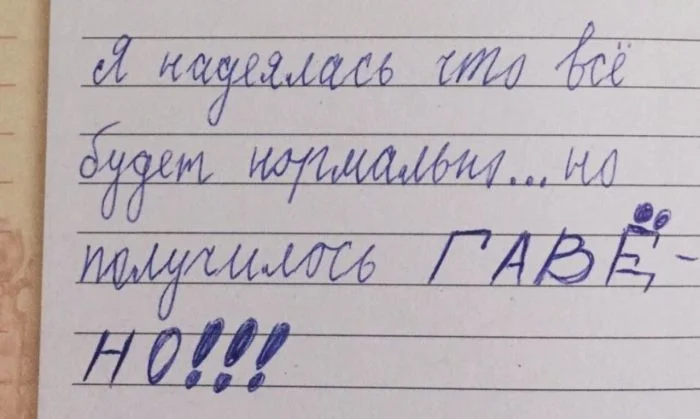 Я надеялась что всё
будет нормально... но
получилось ГАВЁ-
НО!!!